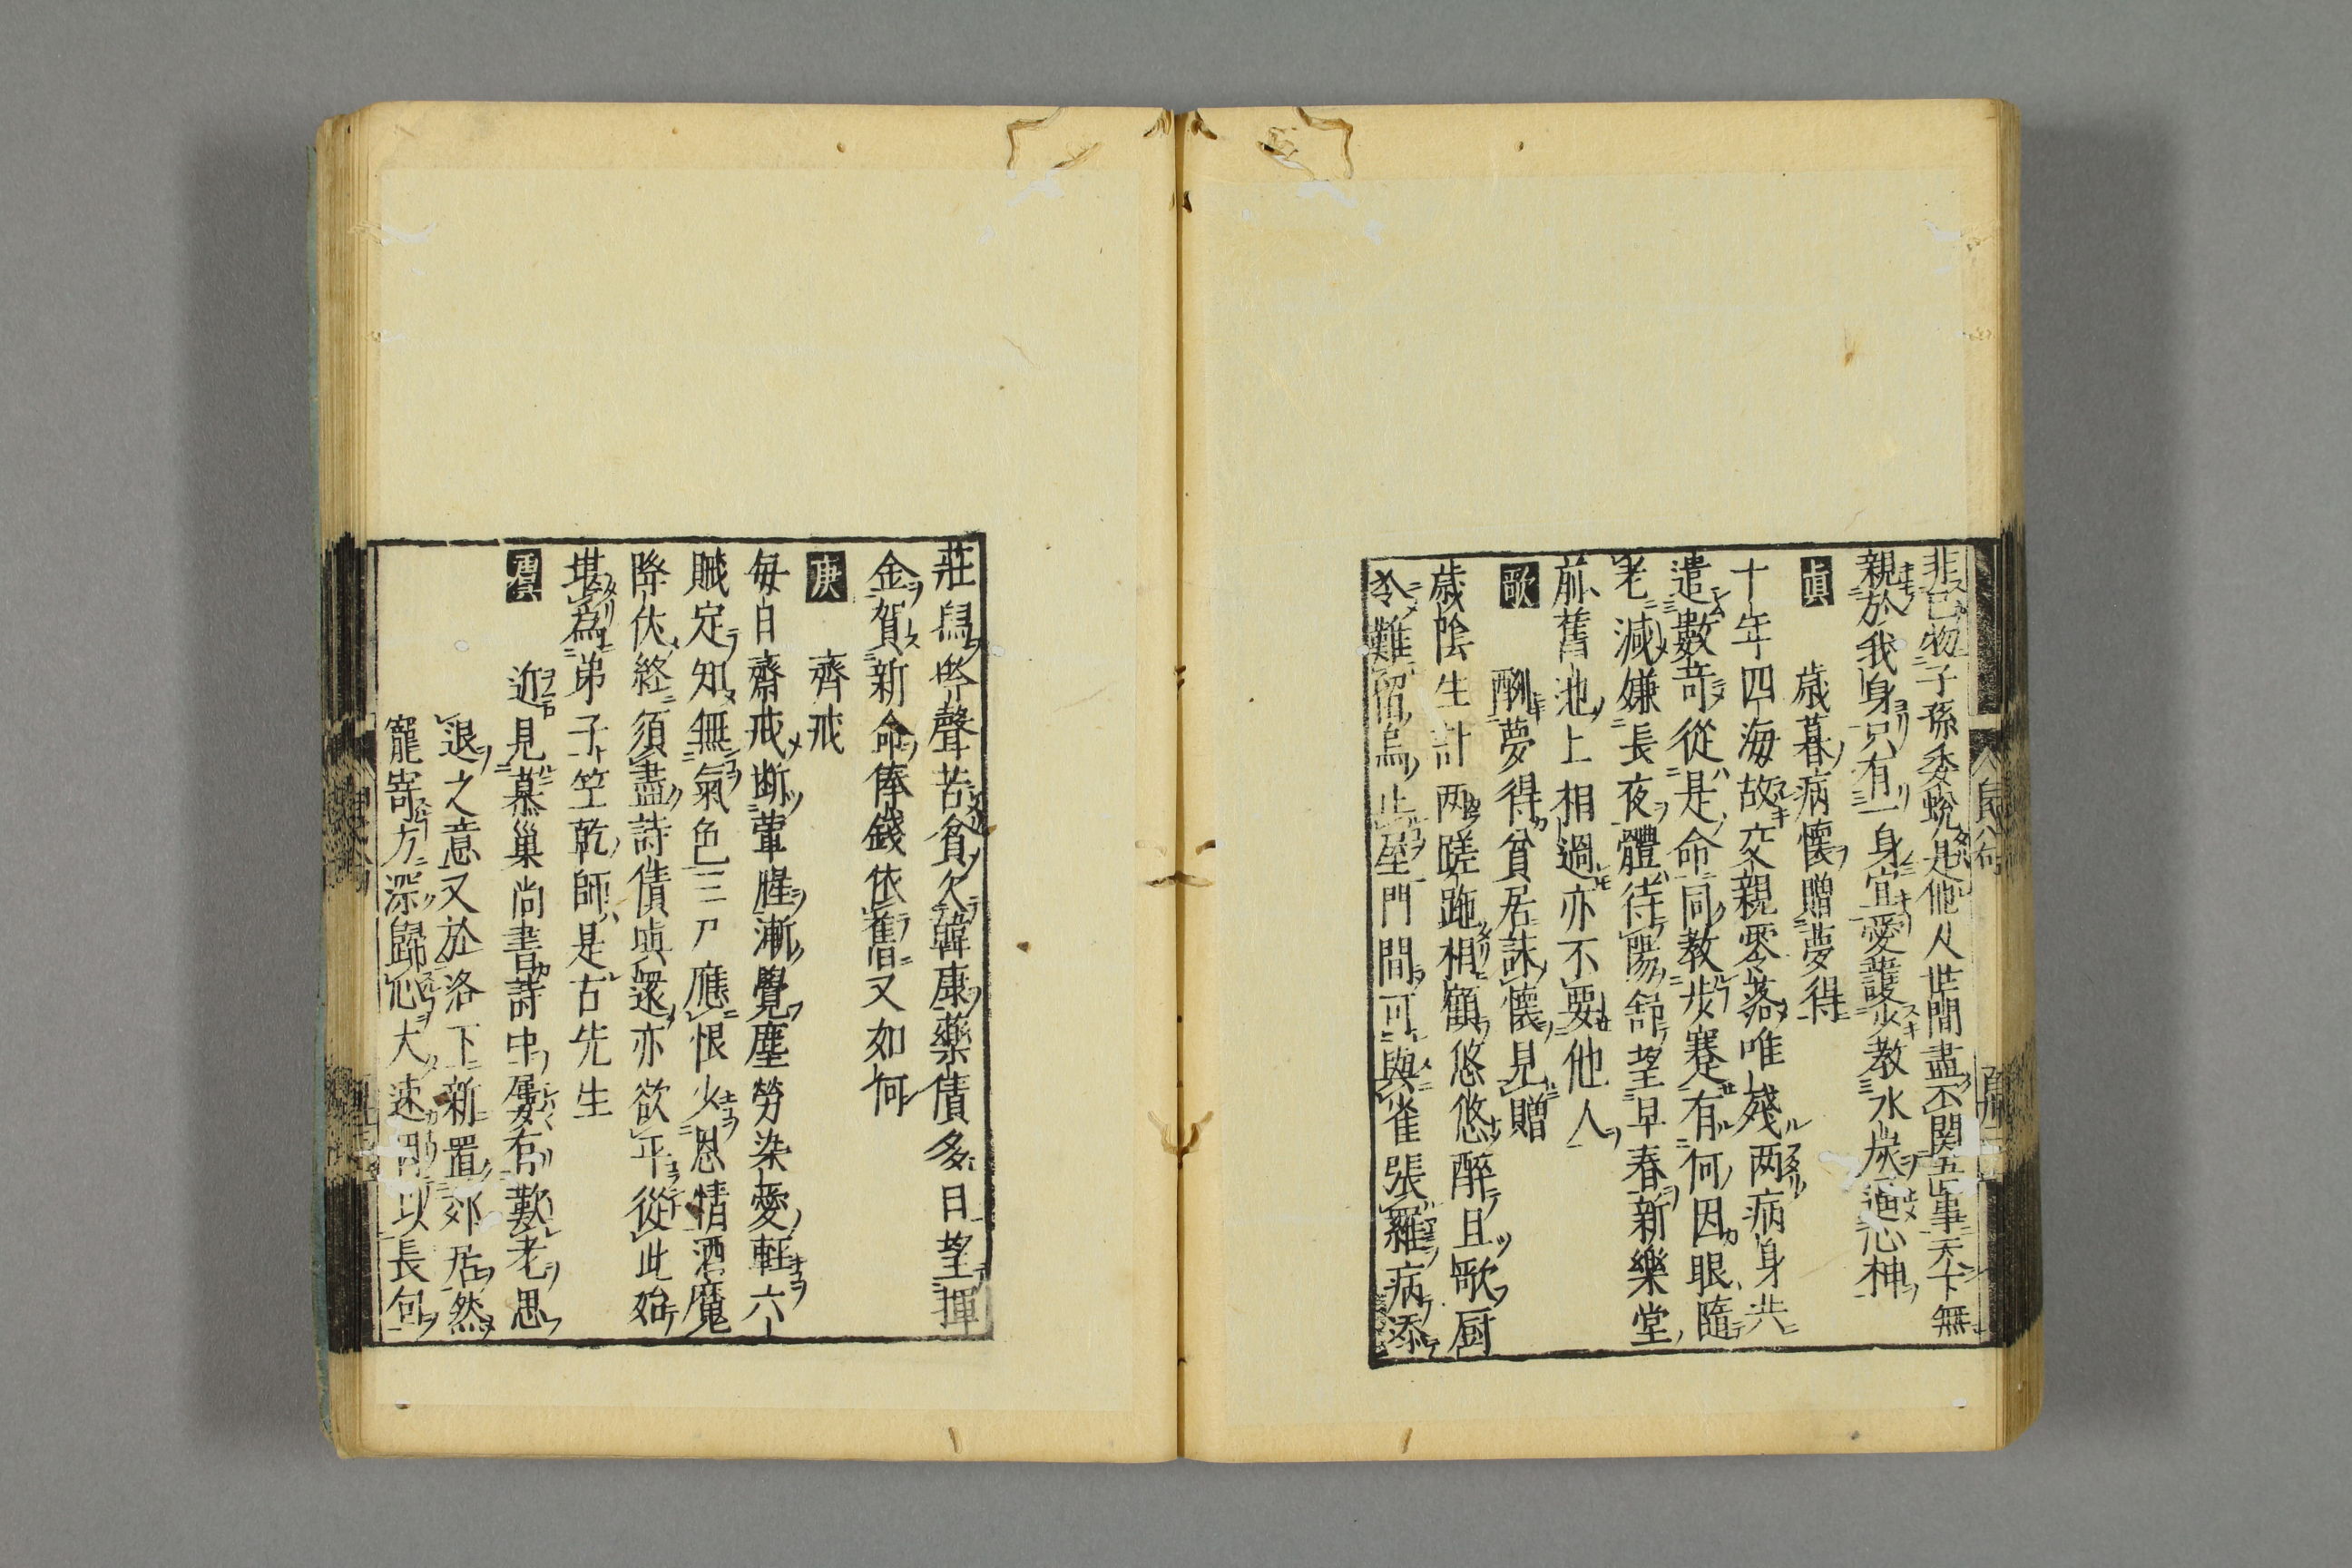 非已物子孫委蛻是他人世間盡不關吾事天下無
親於我身只有一身宜愛護少教氷炭逼心神
眞
歳暮病懷贈夢得
十年四海故交親零落唯殘两病身共
遣數奇從是命同教步蹇有何因眼隨
老減嫌長夜體待陽舒望早春新樂堂
前舊池上相過亦不要他人
歌
酬夢得貧居詠懷見贈
歳陰生計两蹉跎相顧悠悠醉且歌厨
冷難留烏止屋門間可與雀張羅病添
莊舄吟聲苦貧欠韓康藥債多日望揮
金賀新命俸錢依舊又如何
庚
齊戒
毎日齋戒断葷腥漸覺塵勞染愛軽六
賊定知無氣色三尸應恨少恩情酒魔
降伏終須盡詩債塡還亦欲平從此始
堪為弟子竺乾師是古先生
近見慕巢尚書詩中屢有歎老思
退之意又於洛下新置郊居然
寵寄方深歸心大速因以長句